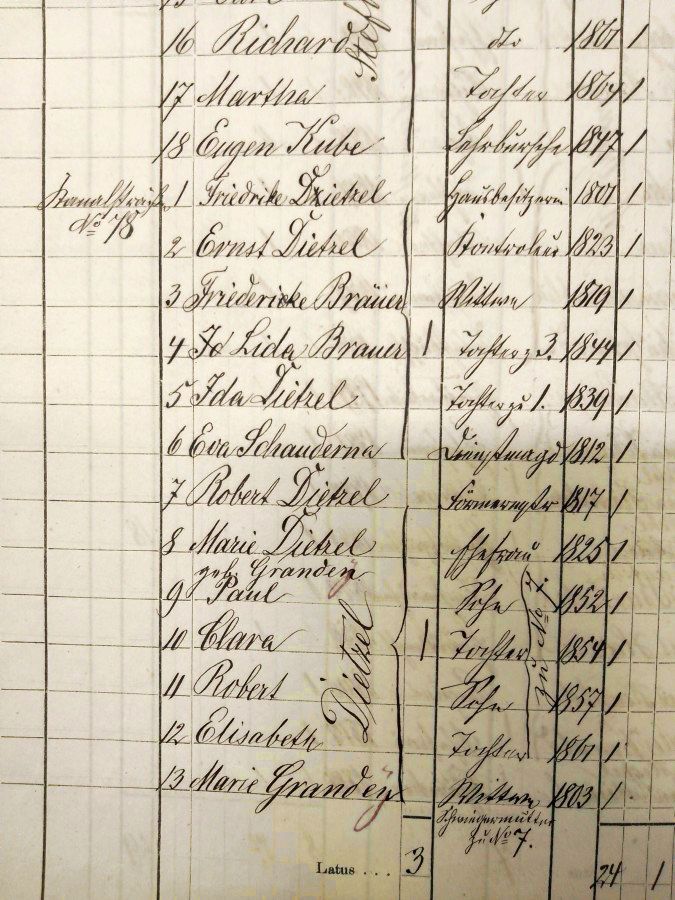 16 Richard dto 1861 1
17 Martha Tochter 1864 1
18 Eugen Kube Lehrbursche 1847 1
Kanalstraße 1 Friedrike Dietzel Hausbesitzerin 1801 1
No 78
2 Ernst Dietzel Kontroleur 1823 1
3 Friedericke Bräuer Wittwe 1819 1
4 Lida Brauer 1 Tochter z 3. 1844 1
5 Ida Dietzel Tochter zu 1. 1839 1
6 Eva Schanderna Dienstmagd 1812 1
7 Robert Dietzel 1817 1
8 Marie Dietzel Ehefrau 1825 1
geb. Grandey
9 Paul Sohn 1852 1
10 Clara 1 Tochter 1854 1
Dietzel
zu No 7.
11 Robert Sohn 1857 1
12 Elisabeth Tochter 1861 1
13 Marie Grandey Wittwe 1803 1
Schwiegermutter
zu No 7.
Latus . . . 3 24 1